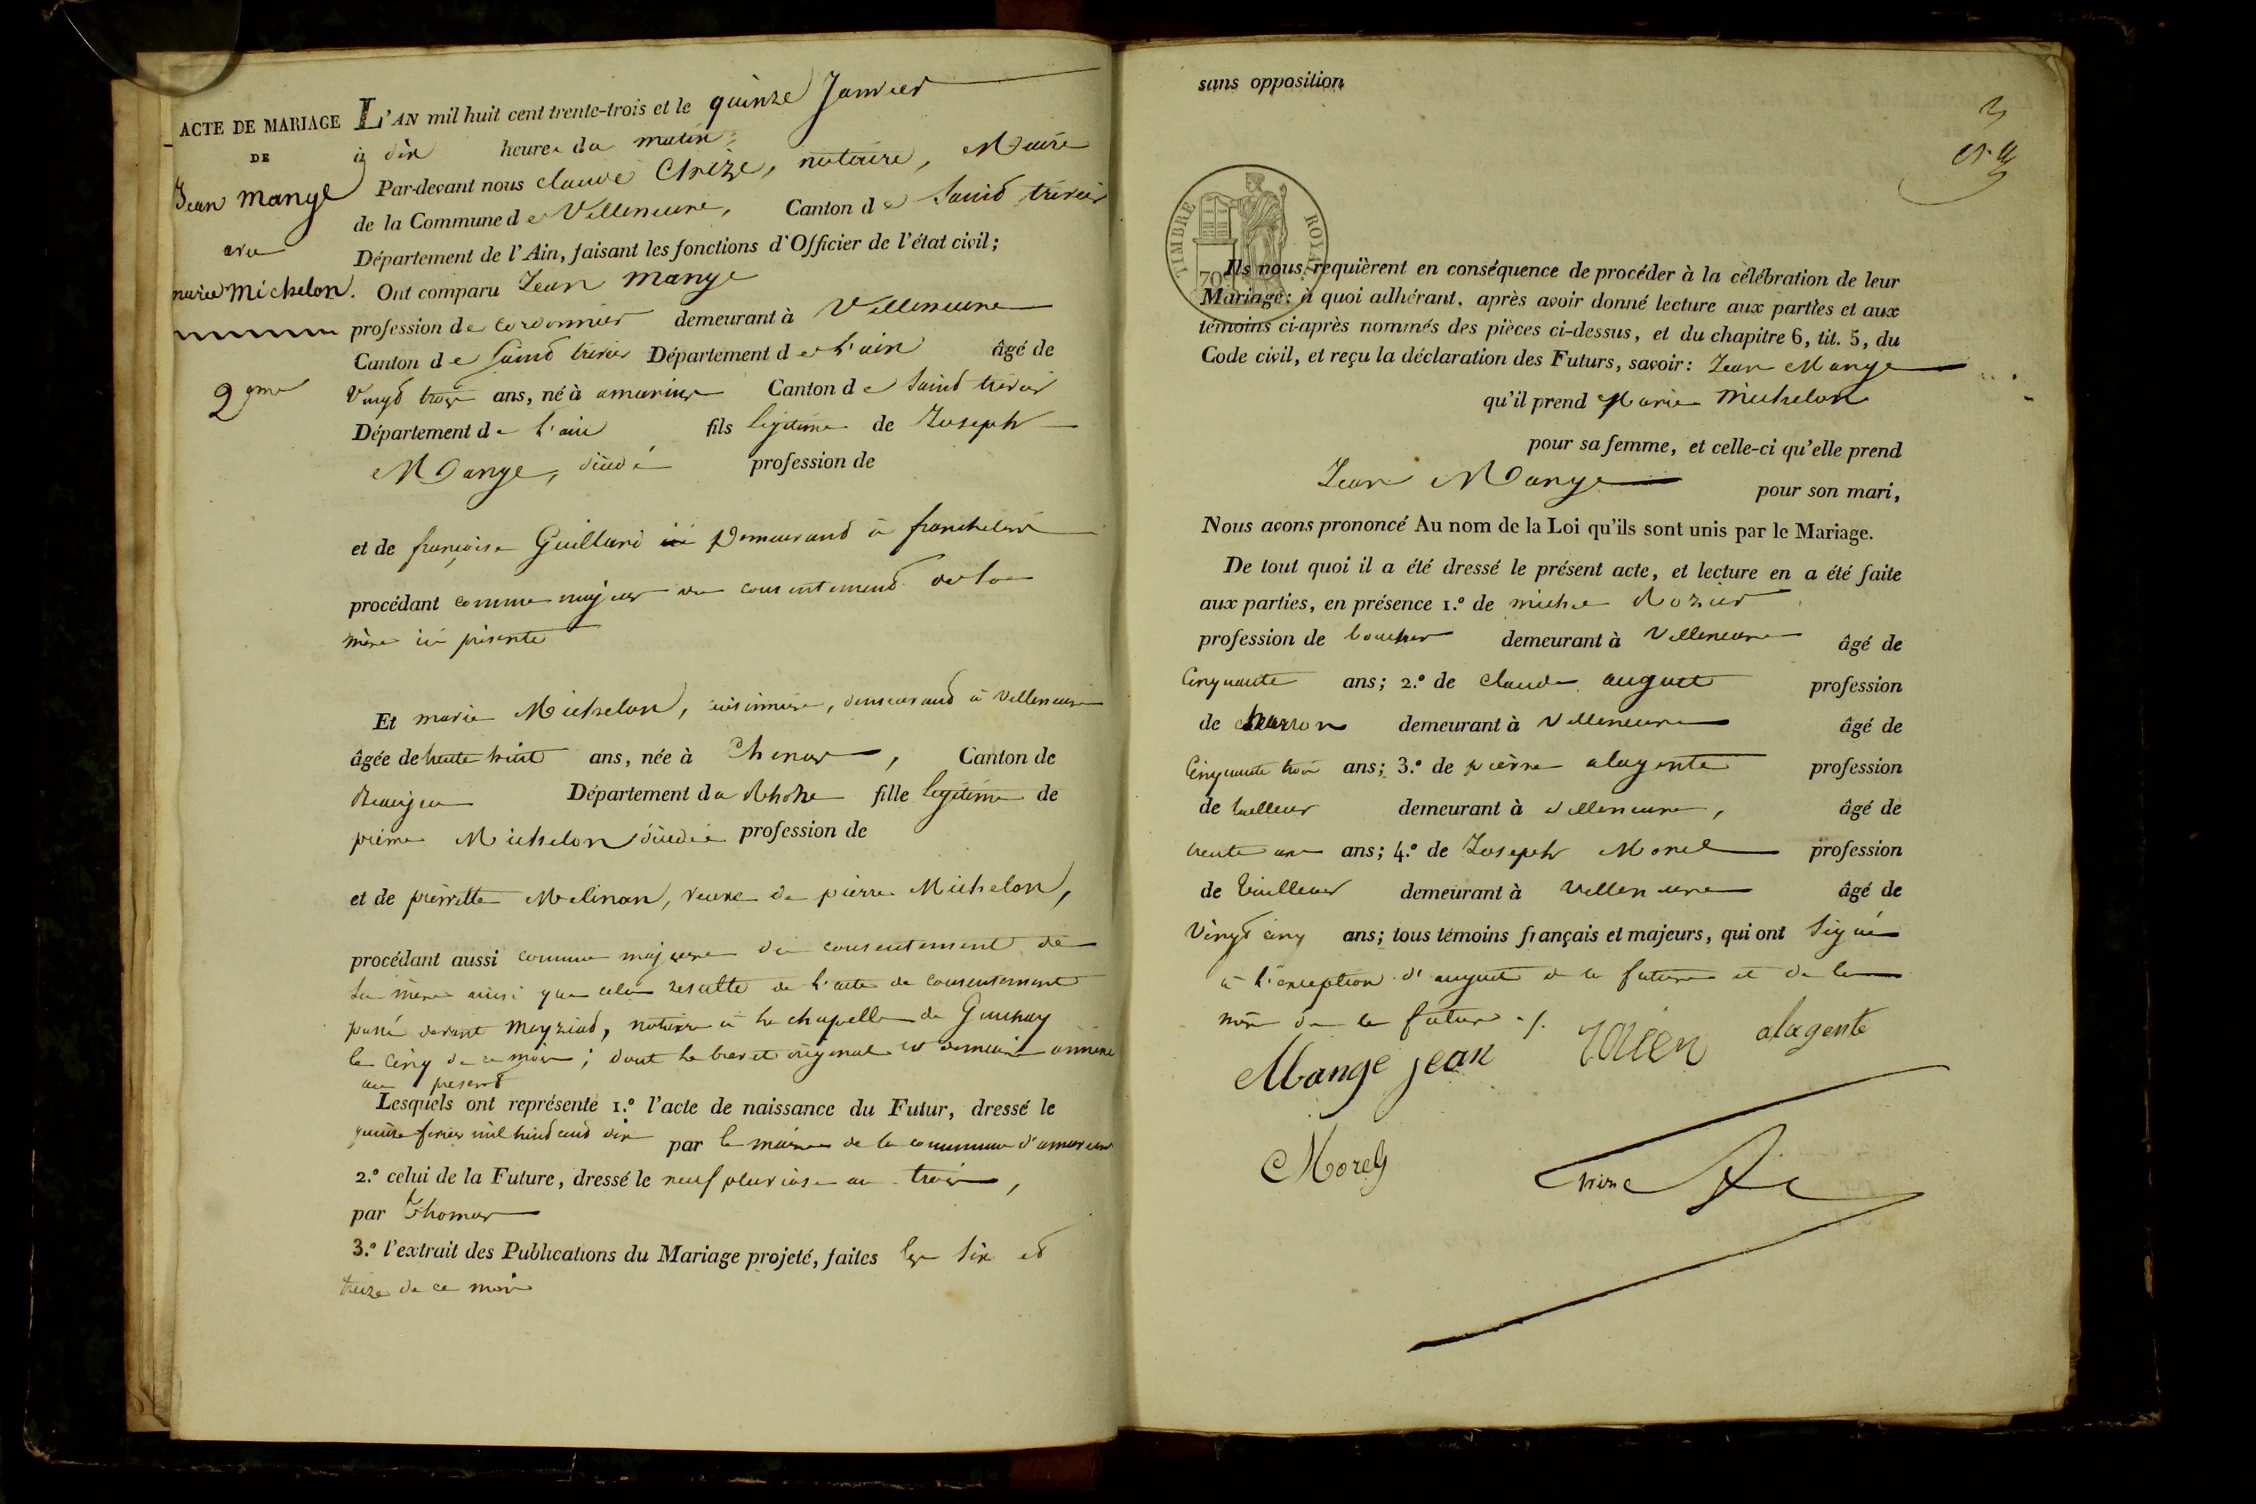 ACTE DE MARIAGE
DE
Jean Mange
avec
marie Michelon.
2eme
L'AN mil huit cent trente-trois et le quinze Janvier
à dix heures du matin
Par-devant nous claude Chize, notaire, Maire
de la Commune de Villeneuve, Canton de Saint trivier
Département de l'Ain, faisant les fonctions d'Officier de l'état civil;
Ont comparu Jean Mange
profession de cordonnier demeurant à Villeneuve
Canton de Saint trivier Département de l'ain âgé de
Vingt trois ans, né à amarins Canton de Saint trivier
Département de l'ain fils légitime de Joseph
Mange, décédé profession de
et de françoise Guillard demeurant à francheleins
procédant comme majeur du consentement de la
mère ici présente
Et marie Michelon, cuisinière, demeurant à Villeneuve
âgée de trente huit ans, née à Chenas, Canton de
Beaujeu Département du Rhône fille légitime de
pierre Michelon décédé profession de
et de pierrette Melinon, veuve de pierre Michelon,
procédant aussi comme majeure du consentement de
sa mère ainsi que cela résulte de l'acte de consentement
passé devant Meyziad, notaire à la chapelle de Guinchay
le cinq de ce mois; dont le brevet original est demeuré annexé
au présent
Lesquels ont représenté 1.º l'acte de naissance du Futur, dressé le
février mil huit cent dix par le maire de la commune d'amareins
2.º celui de la Future, dressé le neuf pluviose an trois,
par Thomas
3.º l'extrait des Publications du Mariage projeté, faites les six et
treize de ce mois
sans opposition
TIMBRE ROYAL
70
Ils nous requièrent en conséquence de procéder à la célébration de leur
Mariage: à quoi adhérant, après avoir donné lecture aux parties et aux
témoins ci-après nommés des pièces ci-dessus, et du chapitre 6, tit. 5, du
Code civil, et reçu la déclaration des Futurs, savoir: Jean Mange
qu'il prend Marie Michelon
pour sa femme, et celle-ci qu'elle prend
Jean Mange pour son mari,
Nous avons prononcé Au nom de la Loi qu'ils sont unis par le Mariage.
De tout quoi il a été dressé le présent acte, et lecture en a été faite
aux parties, en présence 1.º de michel Rozier
profession de boucher demeurant à Villeneuve âgé de
Cinquante ans; 2.º de claude auguet profession
de charron demeurant à Villeneuve âgé de
Cinquante trois ans; 3.º de pierre alagente profession
de tailleur demeurant à Villeneuve, âgé de
trente un ans; 4.º de Joseph Morel profession
de tailleur demeurant à Villeneuve âgé de
Vingt cinq ans; tous témoins français et majeurs, qui ont signé
à l'exception d'auguet de la future et de la
mère de la future ./.
Mange jean alagente
Morel